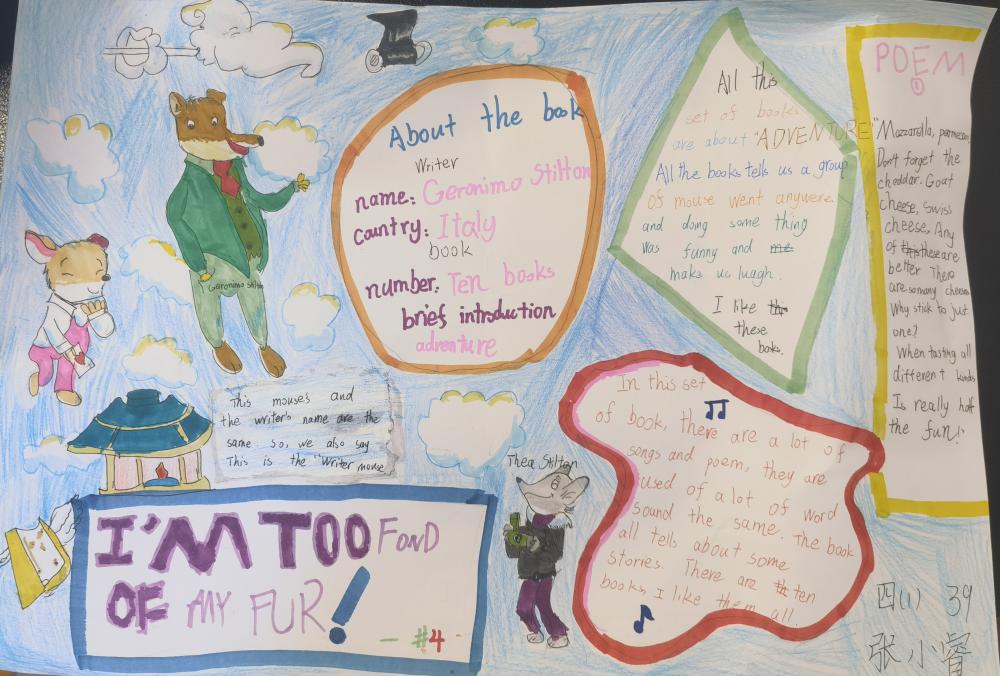 About the book
Writer
name: Geronimo Stilton
country: Italy
book
number: Ten books
brief introduction
adventure
All this
set of books
are about "ADVENTURE"
All the books tells us a group
of mouse went anywere
and doing some thing
was funny and
maks us luagh.
I like
these
books.
POEM
①
Mozzarella, parmesan,
Don't forget the
cheddar. Goat
cheese, Swiss
cheese, Any
of these are
better There
are so many cheeses
Why stick to just
one?
When tasting all
different kinds
Is really half
the fun!
Geronimo Stilton
This mouse's and
the writer's name are the
same. so, we also say
This is the "Writer mouse
Thea Stilton
In this set
of book, there are a lot of
songs and poem, they are
used of a lot of word
sound the same. The book
all tells about some
stories. There are ten
books, I like them all.
I'M TOO FOND
OF MY FUR!
- #4 -
四(1) 39
张小睿